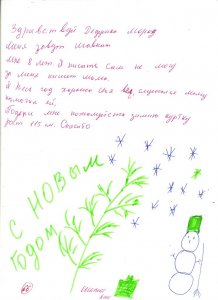 Здравствуй Дедушка мороз
Меня зовут
Мне 8 лет Я писать Сам не могу
за меня пишет мама.
Я весь год хорошо себя вел слушался маму
помогал ей.
Подари мне пожалуйста зимнию куртку
рост 115 м. Спасибо
С НОВЫМ
ГОДОМ